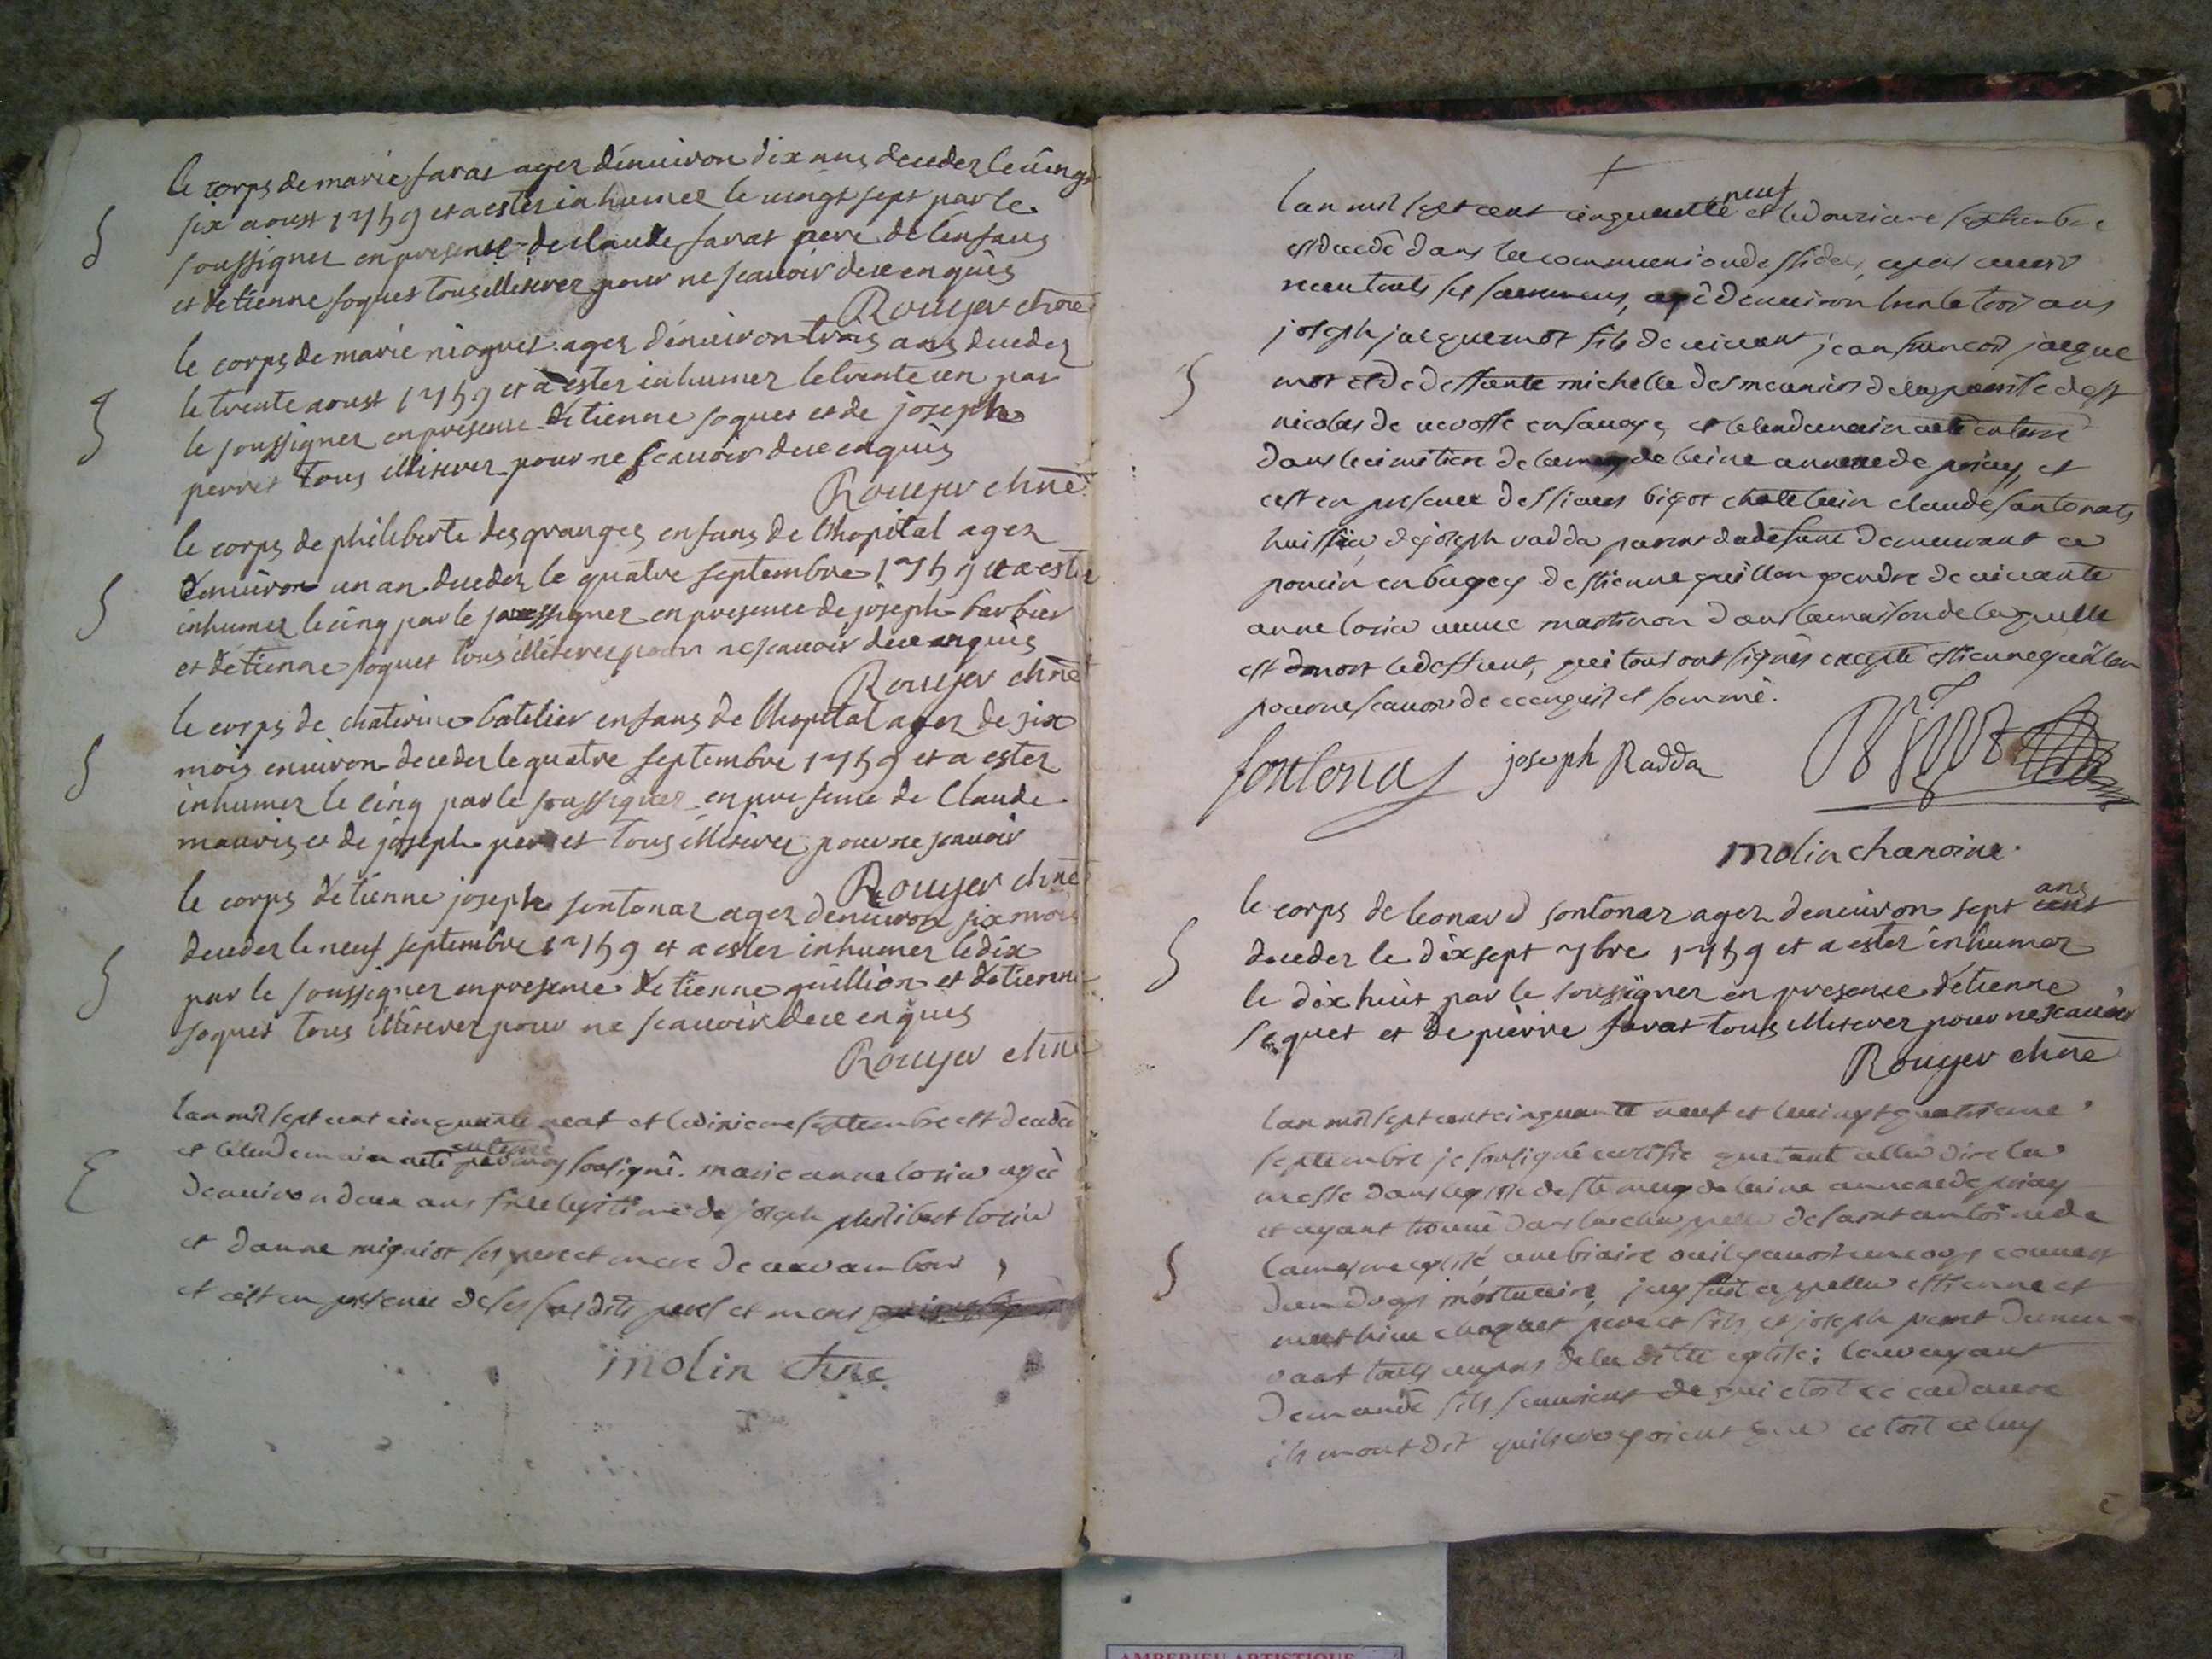 le corps de marie faras agez dénuiron dix ans decedez le uingt
six aoust 1759 et a ester inhumee le uingt sept par le
soussigner en presense de claude faras pere de lenfans
et détienne soques tous illiterez pour ne scauoir dece enquis
Rouyer chne
le corps de marie nioques agez dénuiron trois ans decedez
le trente aoust 1759 et a ester inhumer le trente un par
le soussigner en presense détienne soques et de joseph
perret tous illiterez pour ne scauoir dece enquis
Rouyer chne
le corps de philiberte desgranges enfans de lhopital agez
denuiron un an decedez le quatre septembre 1759 et a ester
inhumez le cinq par le soussigner en presence de joseph barbier
et détienne soques tous illiterez pour ne scauoir dece enquis
Rouyer chne
le corps de chaterine batelier enfans de lhopital agez de six
mois enuiron decedez le quatre septembre 1759 et a ester
inhumez le cinq par le soussigner en presense de Claude
mauris et de joseph perret tous illiterez pour ne scauoir
Rouyer chne
le corps détienne joseph fontonas agez denuiron six mois
decedez le neuf septembre 1759 et a ester inhumer le dix
par le soussigner en presense détienne guillion et détienne
soques tous illiterez pour ne scauoir dece enquis
Rouyer chne
lan mil sept cent cinquante neuf et le dixieme septembre est decedé
et le lendemain a eté enterré par moy soussigné marie anne agée
denuiron deux ans fille legitime de joseph philibert
et danne migniot ses pere et mere
et cest en presence de ses susdits pere et mere
molin chne
lan mil sept cent cinquante neuf et le douzieme septembre
est decedé dans la communion des fideles, apres auoir
receu touts ses sacremens, agé denuiron trente trois ans
joseph jacquemot fils de uiuant jean francois jacque
mot et de deffunte michelle desmeunier de la paroisse de st
nicolas de ueroffe en sauoye, et le lendemain a eté enterré
dans le cimetiere de la magdeleine annexe de priay, et
cest en presence des sieurs bigot chatelain claude fontonas
huissier de joseph radda parent du defunt demeurant a
poncin en bugey destienne guillon gendre de uiuante
anne ueuue martinon dans la maison de laquelle
est mort le deffunt, qui tous ont signés excepté estienne guillon
pour ne scauoir de ce enquis et sommé.
fontonas joseph Radda Bigot
molin chanoine
le corps de leonard fontonas agez denuiron sept ans
decedez le dix sept 7bre 1759 et a ester inhumer
le dix huit par le soussigner en presence détienne
soques et de pierre faras tous illiterez pour ne scauoir
Rouyer chne
lan mil sept cent cinquante neuf et le uingt quatrieme
septembre je soussigné certifie quetant allé dire la
messe dans leglise de ste magdeleine annexe de priay
et ayant trouué dans la chappelle de saint antoine de
la mesme eglise une biaire ou il y auoit un corps couuert
dun drap mortuaire, jay fait appeller estienne et
mathieu choquet pere et fils et joseph perret demeu
rant touts aupres de la ditte eglise; leur ayant
demandé sils scauoient de qui etoit ce cadaure
ils mont dit quils croyoient que cetoit celuy
AMBERIEU ARTISTIQUE